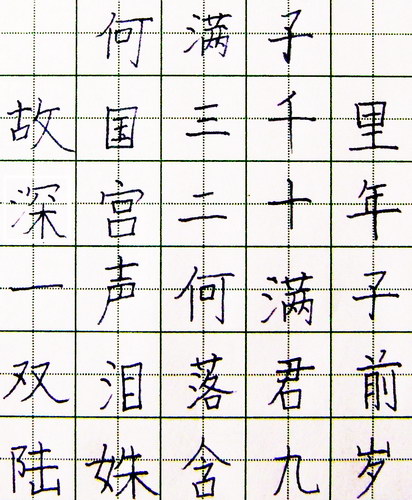 何满子
故国三千里
深宫二十年
一声何满子
双泪落君前
陆姝含九岁